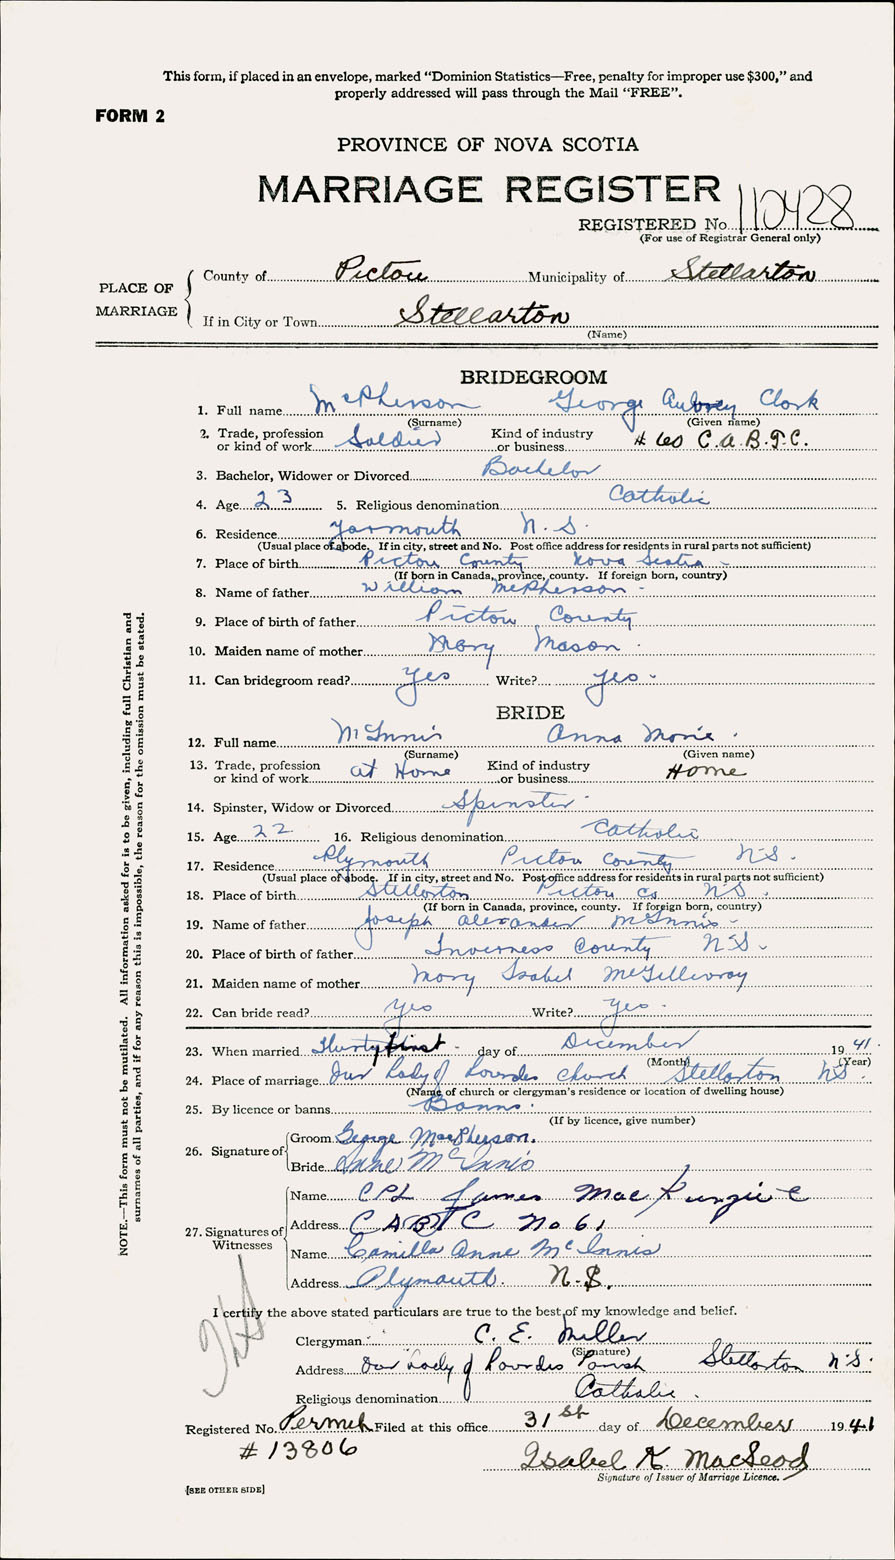 This form, if placed in an envelope, marked “Dominion Statistics—Free, penalty for improper use $300,” and
properly addressed will pass through the Mail “FREE”.
FORM 2
PROVINCE OF NOVA SCOTIA
MARRIAGE REGISTER
REGISTERED No. 110428
(For use of Registrar General only)
PLACE OF MARRIAGE
County of Pictou Municipality of Stellarton
If in City or Town Stellarton
(Name)
BRIDEGROOM
1. Full name McPherson George Aubrey Clark
(Surname) (Given name)
2. Trade, profession or kind of work Soldier Kind of industry or business # 60 C.A.B.T.C.
3. Bachelor, Widower or Divorced Bachelor
4. Age 23 5. Religious denomination Catholic
6. Residence Yarmouth N.S.
(Usual place of abode. If in city, street and No. Post office address for residents in rural parts not sufficient)
7. Place of birth Pictou County Nova Scotia
(If born in Canada, province, county. If foreign born, country)
8. Name of father William McPherson
9. Place of birth of father Pictou County
10. Maiden name of mother Mary Mason
11. Can bridegroom read? Yes Write? Yes
BRIDE
12. Full name McInnis Anna Marie
(Surname) (Given name)
13. Trade, profession or kind of work at Home Kind of industry or business Home
14. Spinster, Widow or Divorced Spinster
15. Age 22 16. Religious denomination Catholic
17. Residence Plymouth Pictou County N.S.
(Usual place of abode. If in city, street and No. Post office address for residents in rural parts not sufficient)
18. Place of birth Stellarton Pictou Co N.S.
(If born in Canada, province, county. If foreign born, country)
19. Name of father Joseph Alexander McInnis
20. Place of birth of father Inverness County N.S.
21. Maiden name of mother Mary Isabel McGillivray
22. Can bride read? Yes Write? Yes
23. When married Thirty first day of December 1941
(Month) (Year)
24. Place of marriage Our Lady of Lourdes Church Stellarton N.S.
(Name of church or clergyman's residence or location of dwelling house)
25. By licence or banns Banns.
(If by licence, give number)
26. Signature of
Groom George MacPherson.
Bride Anne McInnis
27. Signatures of Witnesses
Name CPL James MacKenzie
Address C A B T C No 61
Name Camilla Anne McInnis
Address Plymouth. N.S.
I certify the above stated particulars are true to the best of my knowledge and belief.
Clergyman C. E. Miller
(Signature)
Address Our Lady of Lourdes Parish Stellarton N.S.
Religious denomination Catholic.
Registered No. Permit Filed at this office 31st day of December 1941
# 13806
Isabel K. MacLeod
Signature of Issuer of Marriage Licence.
[SEE OTHER SIDE]
NOTE.—This form must not be mutilated. All information asked for is to be given, including full Christian and
surnames of all parties, and if for any reason this is impossible, the reason for the omission must be stated.